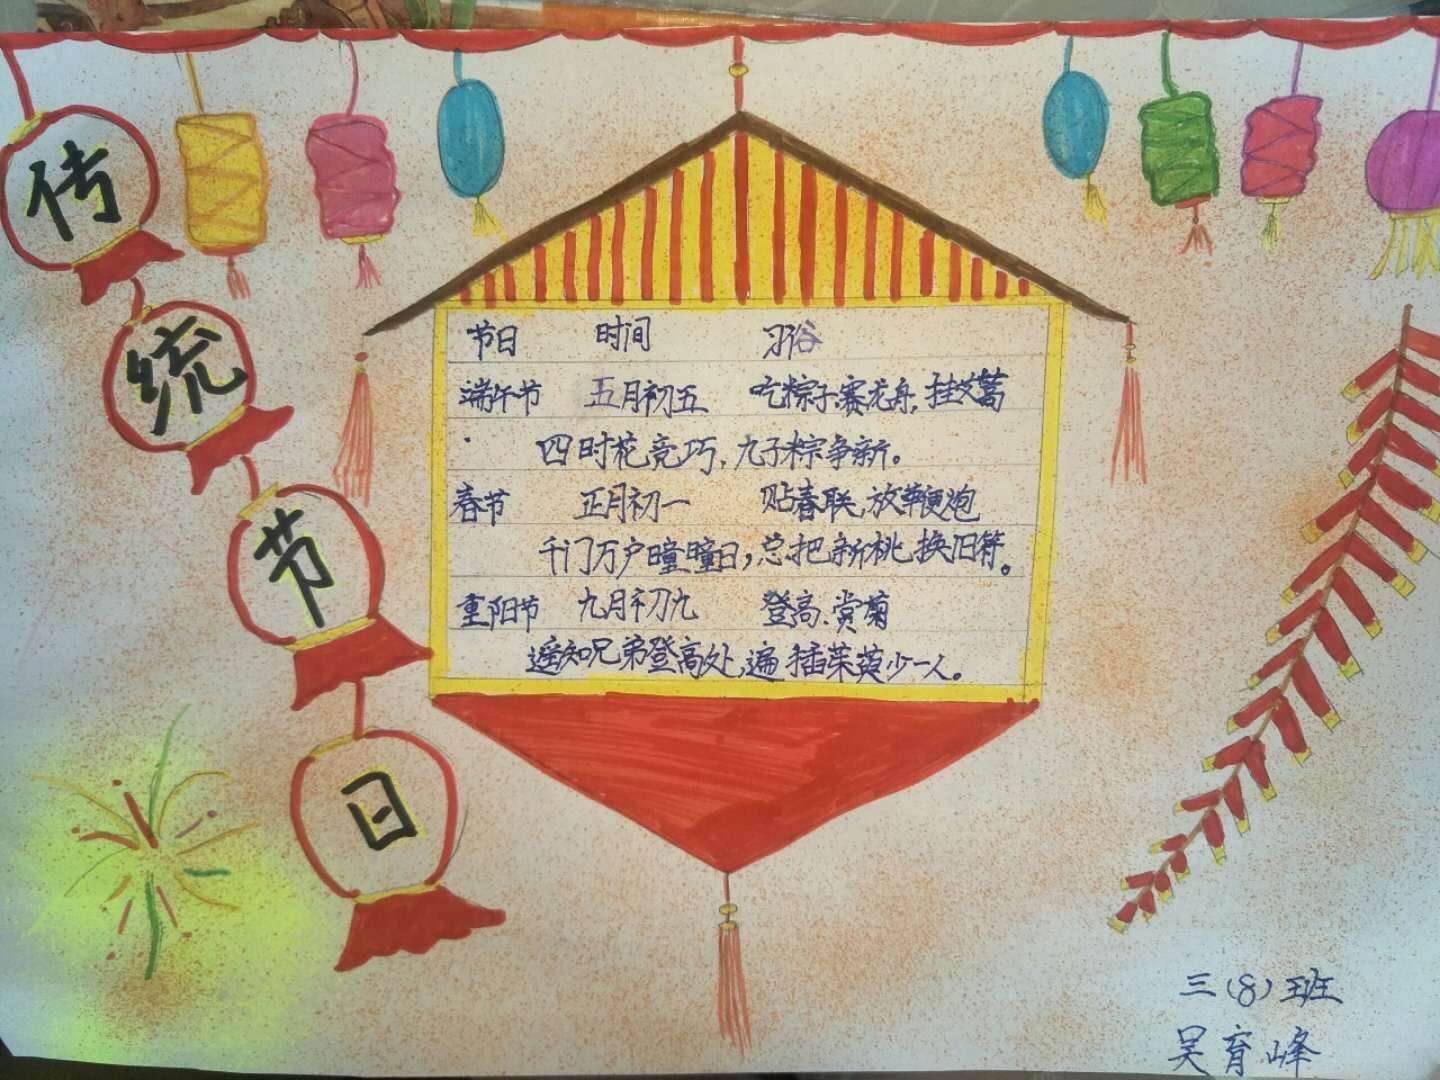 传统节日
节日 时间 习俗
端午节 五月初五 吃粽子,赛龙舟,挂艾蒿
四时花竞巧,九子粽争新。
春节 正月初一 贴春联,放鞭炮
千门万户曈曈日,总把新桃换旧符。
重阳节 九月初九 登高、赏菊
遥知兄弟登高处,遍插茱萸少一人。
三(8)班
吴育峰